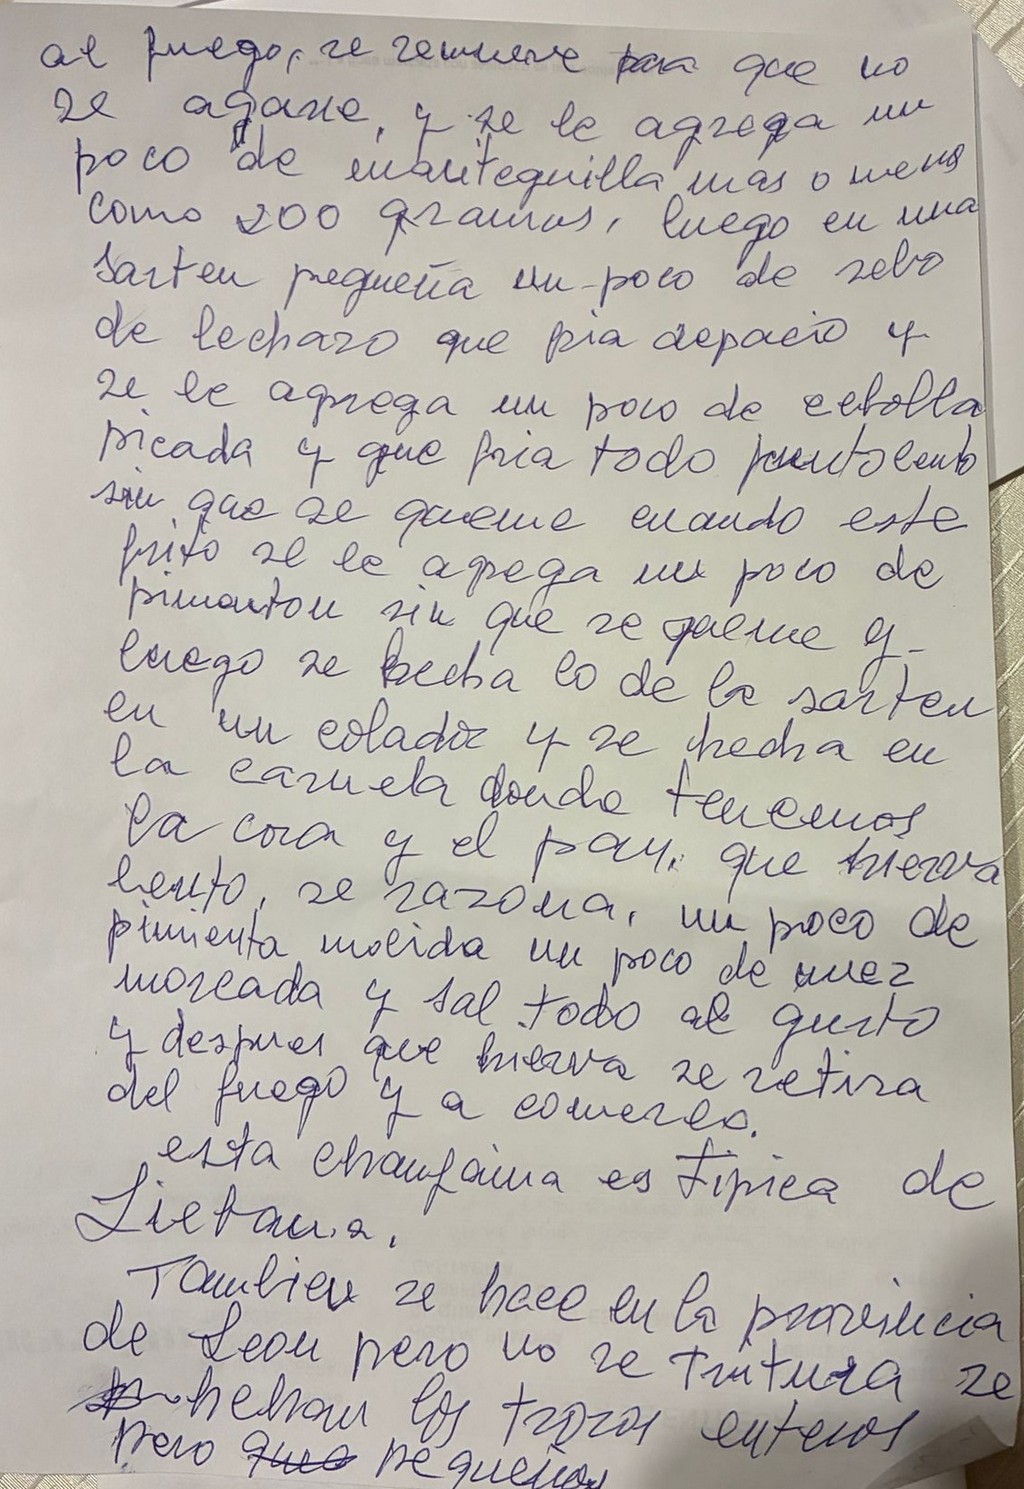 al fuego, se remueve para que no
se agarre, y se le agrega un
poco de mantequilla mas o menos
como 200 gramos, luego en una
sarten pequeña un poco de sebo
de lechazo que fria depacio y
se le agrega un poco de cebolla
picada y que fria todo junto lento
sin que se queme cuando este
frito se le agrega un poco de
pimenton sin que se queme y
luego se hecha lo de la sarten
en un colador y se hecha en
la cazuela donde tenemos
la cosa y el pan, que hierva
lento, se razona, un poco de
pimienta molida un poco de nuez
moscada y sal todo al gusto
y despues que hierva se retira
del fuego y a comerlo.
esta chanfaina es tipica de
Liebana.
Tambien se hace en la provincia
de Leon pero no se tritura se
hechan los trozos enteros
pero que pequeños